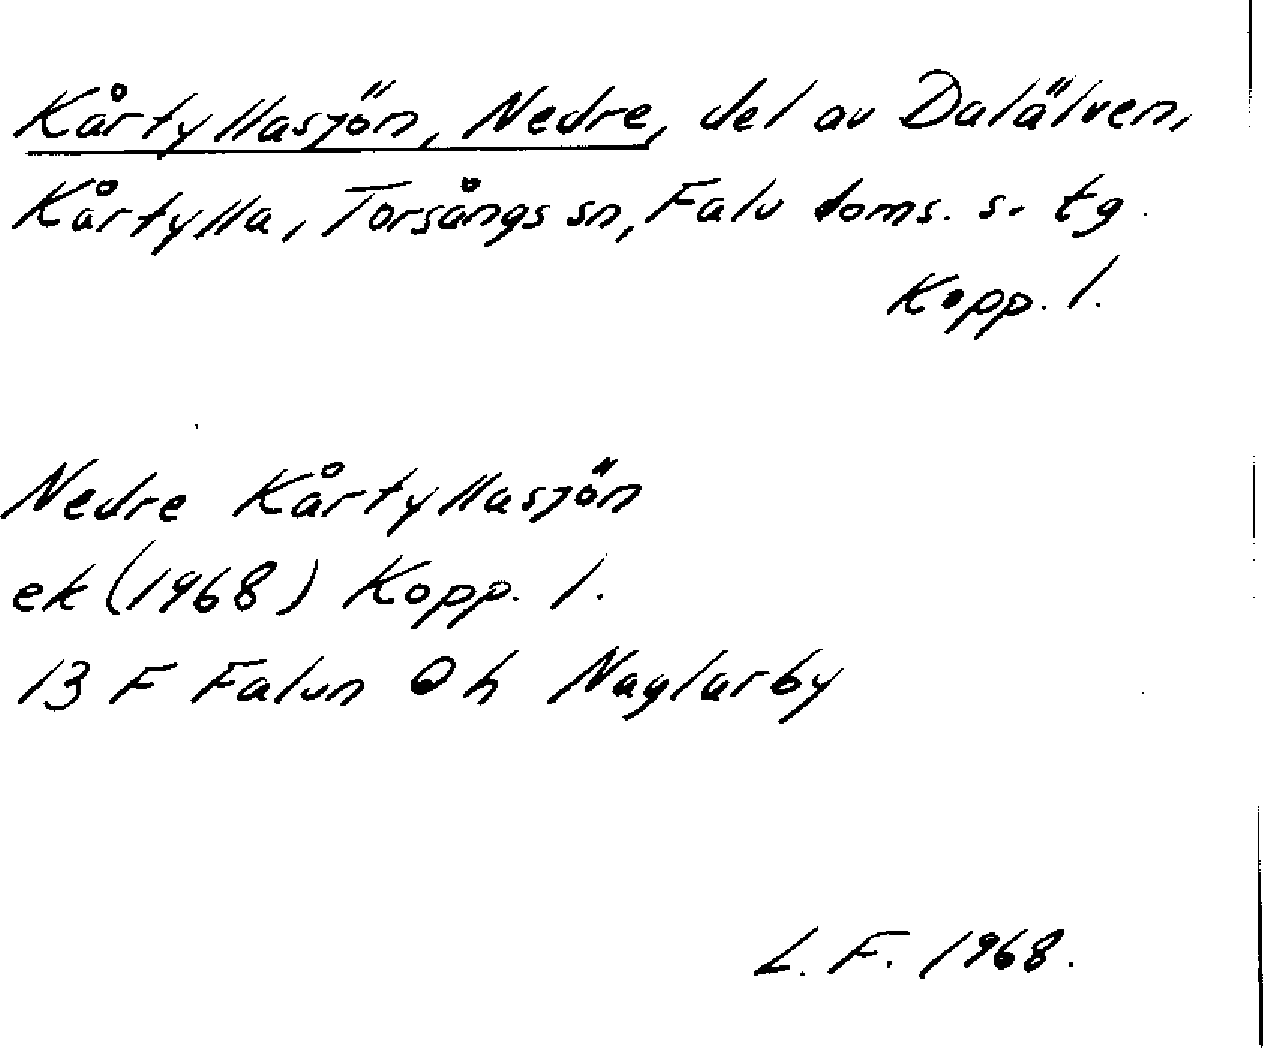 Kårtyllasjön, Nedre, del av Dalälven,
Kårtylla, Torsångs sn, Falu doms. s. tg.
Kopp. l.
Nedre Kårtyllasjön
ek (1968) Kopp. l.
13 F Falun 0 h Naglarby
L. F. 1968.